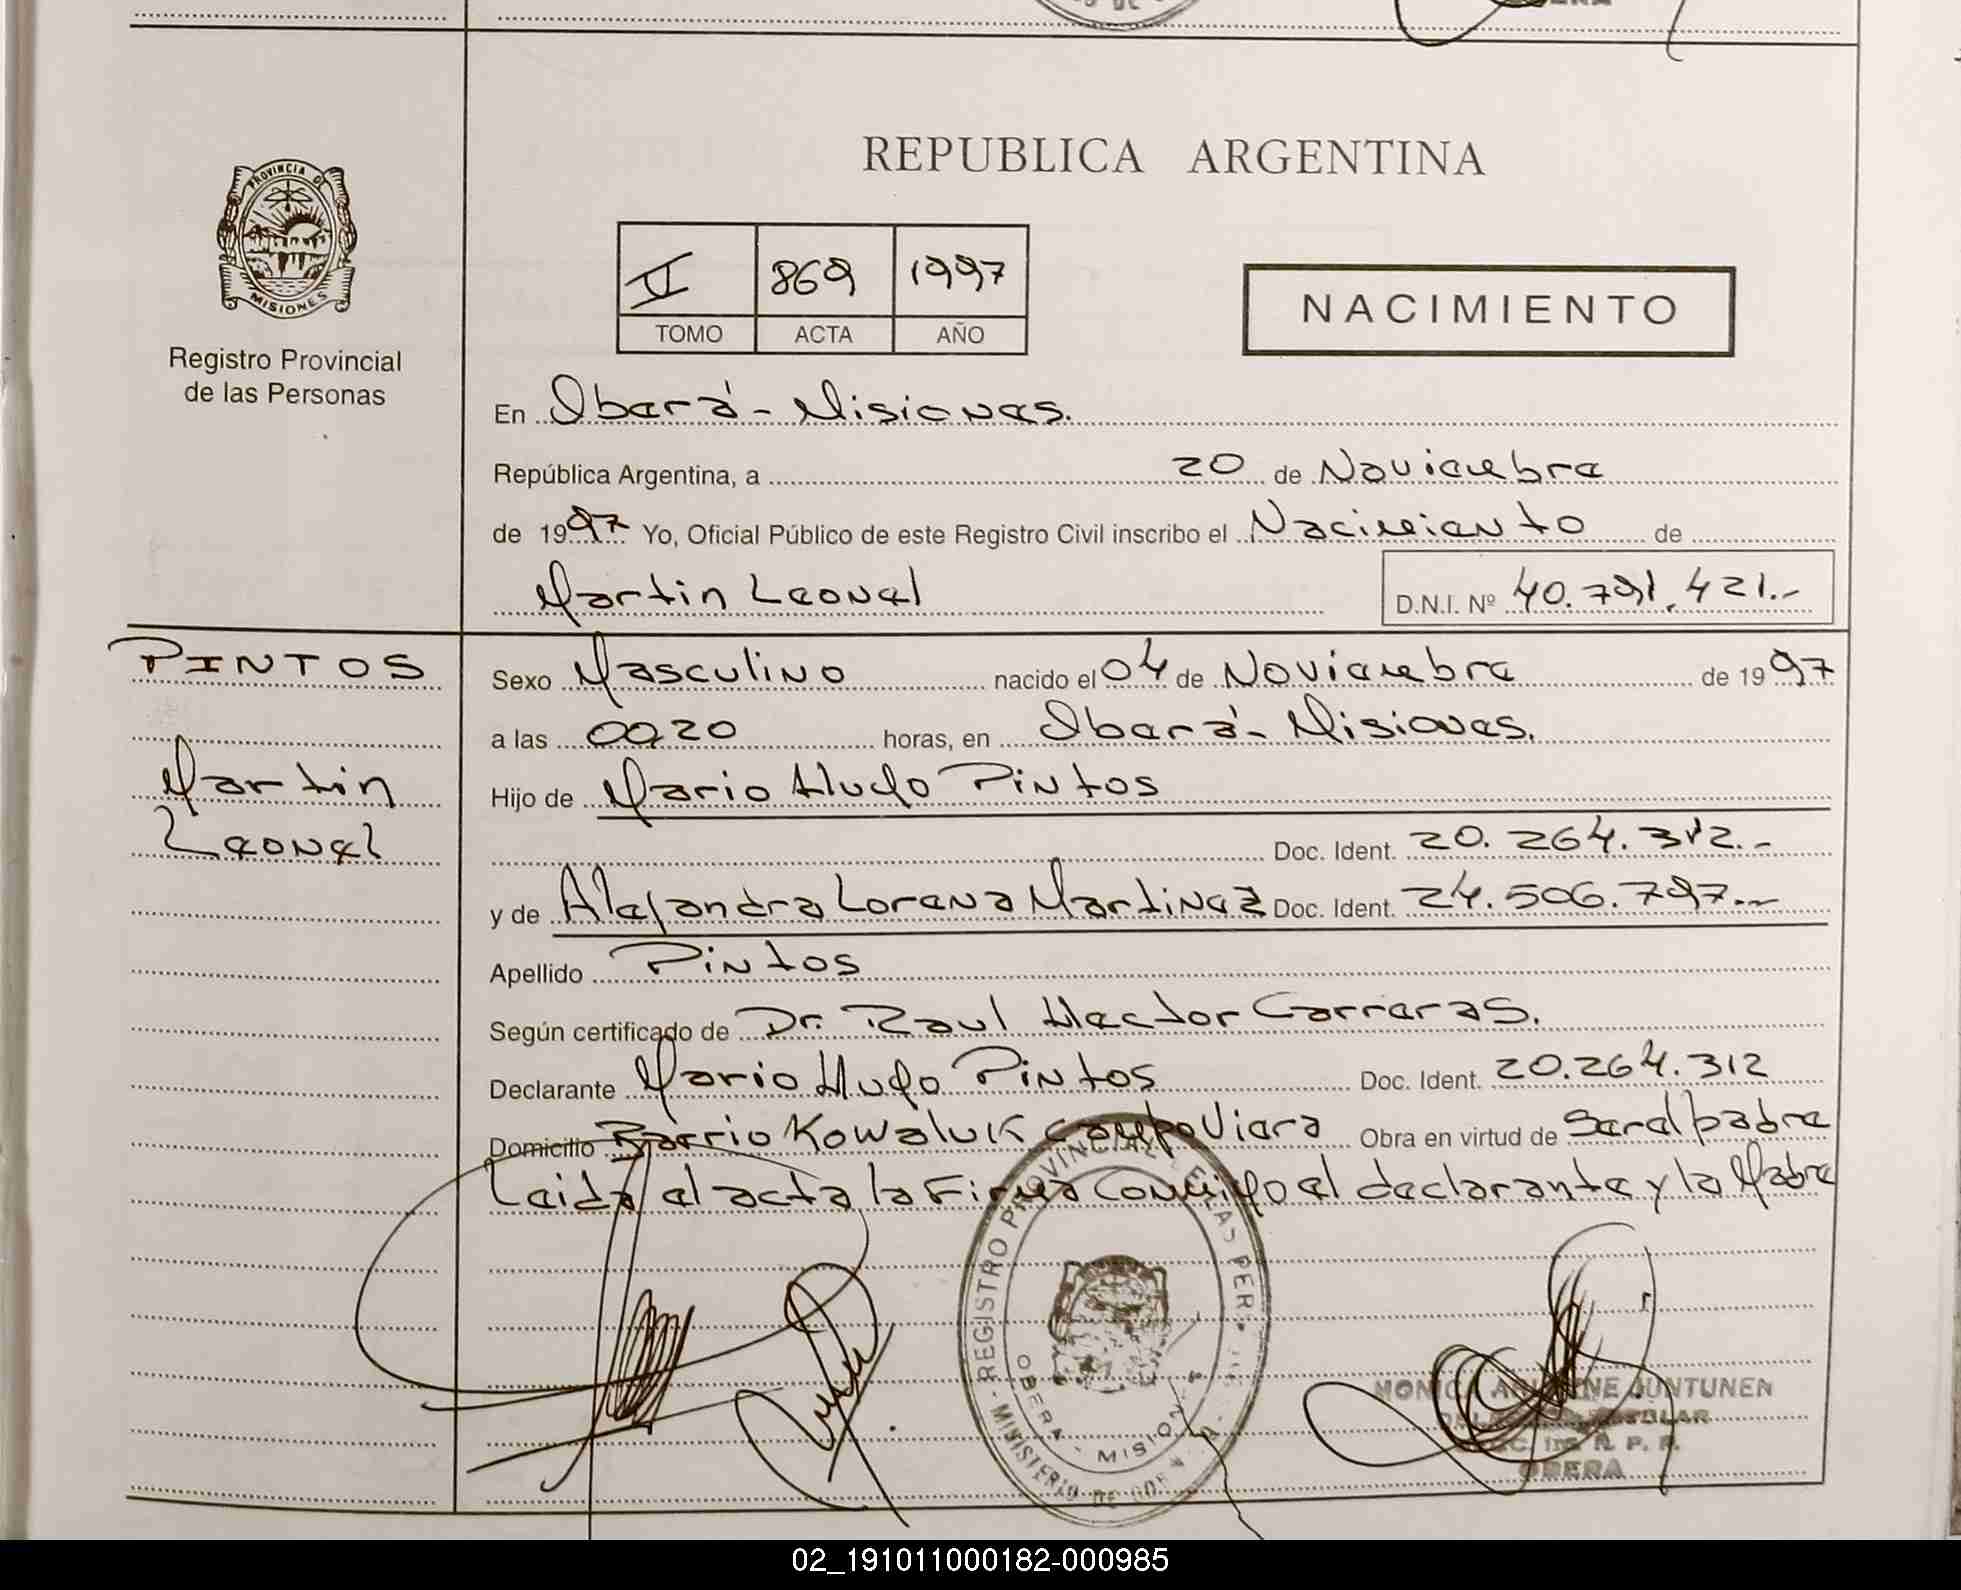 REPUBLICA ARGENTINA
PROVINCIA DE
MISIONES
Registro Provincial
de las Personas
II 869 1997
TOMO ACTA AÑO
NACIMIENTO
En Oberá - Misiones.
República Argentina, a 20 de Noviembre
de 1997 Yo, Oficial Público de este Registro Civil inscribo el Nacimiento de
Martin Leonel D.N.I. Nº 40.791.421.-
PINTOS
Martin
Leonel
Sexo Masculino nacido el 04 de Noviembre de 1997
a las 0020 horas, en Oberá - Misiones.
Hijo de Mario Hugo Pintos
Doc. Ident. 20.264.312.-
y de Alejandra Lorena Martinez Doc. Ident. 24.506.797.-
Apellido Pintos
Según certificado de Dr. Raul Hector Carreras.
Declarante Mario Hugo Pintos Doc. Ident. 20.264.312
Domicilio Barrio Kowaluk Campo Viera Obra en virtud de Ser el padre
Leida el acta la Firma Conmigo el declarante y la Madre
REGISTRO PROVINCIAL DE LAS PER
OBERA - MISION
MINISTERIO DE GOB
MONICA JUNTUNEN
R. P. P.
OBERA
02_191011000182-000985